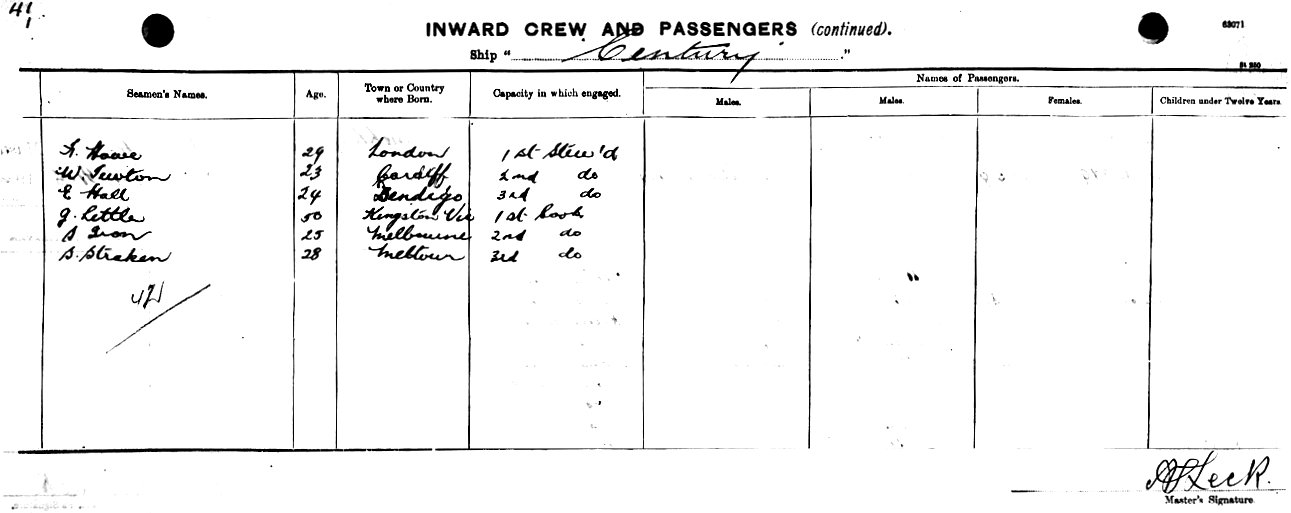 41
INWARD CREW AND PASSENGERS (continued).
63071
Ship " Century "
Seamen's Names. Age. Town or Country where Born. Capacity in which engaged. Names of Passengers.
Males. Males. Females. Children under Twelve Years.
Howe 29 London 1st Stew'd
W. Newton 23 Cardiff 2nd do
E Hall 24 Bendigo 3rd do
G. Little 50 Kingston Vic 1st Cook
S Iron 25 Melbourne 2nd do
S. Straken 28 3rd do
Leck.
Master's Signature